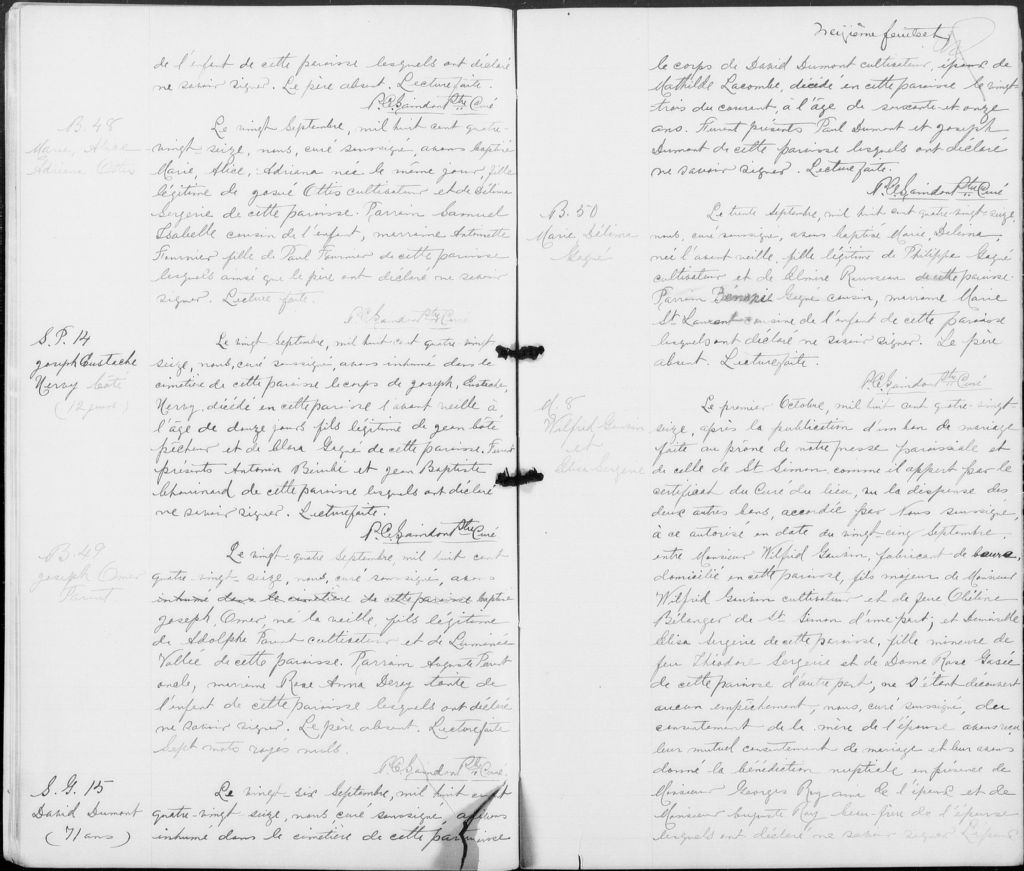 de l'enfant de cette paroisse lesquels ont déclaré
ne savoir signer. Le père absent. Lecture faite.
Ptre Curé
B. 48
Marie, Alice
Adriana Ottis
Le vingt Septembre, mil huit cent quatre-
vingt-seize, nous, curé soussigné, avons baptisé
Marie, Alice, Adriana née le même jour, fille
légitime de Josué Ottis cultivateur et de Délima
Sergerie de cette paroisse. Parrain Samuel
Isabelle cousin de l'enfant, marraine Antoinette
Fournier fille de Paul Fournier de cette paroisse
lesquels ainsi que le père ont déclaré ne savoir
signer. Lecture faite.
Ptre Curé
S. P. 14
Joseph Eustache
Nervy Côté
(12 jours)
Le vingt Septembre, mil huit cent quatre vingt
seize, nous, curé soussigné, avons inhumé dans le
cimetière de cette paroisse le corps de Joseph, Eustache,
Nervy, décédé en cette paroisse l'avant veille à
l'âge de douze jours fils légitime de Jean Côté
pêcheur et de Clara Gagné de cette paroisse. Furent
présents Antonin et Jean Baptiste
Chouinard de cette paroisse lesquels ont déclaré
ne savoir signer. Lecture faite.
Ptre Curé
B. 49
Joseph Omer
Parent
Le vingt-quatre Septembre mil huit cent
quatre-vingt seize, nous, curé soussigné, avons
inhumé dans le cimetière de cette paroisse baptisé
Joseph, Omer, né la veille, fils légitime
de Adolphe Parent cultivateur et de Luminée
Vallée de cette paroisse. Parrain Auguste Parent
oncle, marraine Rose Anna Deroy tante de
l'enfant de cette paroisse lesquels ont déclaré
ne savoir signer. Le père absent. Lecture faite
Sept mots rayés nuls.
Ptre Curé
S. G. 15
David Dumont
(71 ans)
Le vingt-six Septembre, mil huit cent
quatre-vingt seize, nous, curé soussigné, avons
inhumé dans le cimetière de cette paroisse
Treizième feuillet
le corps de David Dumont cultivateur, époux de
Mathilde Lacombe, décédé en cette paroisse le vingt
trois du courant, à l'âge de soixante et onze
ans. Furent présents Paul Dumont et Joseph
Dumont de cette paroisse lesquels ont déclaré
ne savoir signer. Lecture faite.
Ptre Curé
B. 50
Marie Délima
Gagné
Le trente Septembre, mil huit cent quatre-vingt-seize,
nous, curé soussigné, avons baptisé Marie Delima,
née l'avant veille, fille légitime de Philippe Gagné
cultivateur et de Elmire Rousseau de cette paroisse.
Parrain Gagné cousin, marraine Marie
St Laurent cousine de l'enfant de cette paroisse
lesquels ont déclaré ne savoir signer. Le père
absent. Lecture faite.
Ptre Curé
M. 8
Wilfrid
et
Elisa Sergerie
Le premier Octobre, mil huit cent quatre-vingt-
seize, après la publication d'un ban de mariage
faite au prône de notre messe paroissiale et
de celle de St Simon, comme il appert par le
certificat du Curé du lieu, vu la dispense des
deux autres bans, accordée par Nous soussigné,
à ce autorisé en date du vingt-cinq Septembre
entre Monsieur Wilfrid, fabricant de beurre,
domicilié en cette paroisse, fils majeur de Monsieur
Wilfrid cultivateur et de feue
Bélanger de St Simon d'une part; et Demoiselle
Elisa Sergerie de cette paroisse, fille mineure de
feu Théodore Sergerie et de Dame Rose
de cette paroisse d'autre part, ne s'étant découvert
aucun empêchement, nous, curé soussigné, du
consentement de la mère de l'épouse avons reçu
leur mutuel consentement de mariage et leur avons
donné la bénédiction nuptiale en présence de
Monsieur Georges Roy ami de l'époux et de
Monsieur Auguste Roy beau-frère de l'épouse
lesquels ont déclaré ne savoir signer